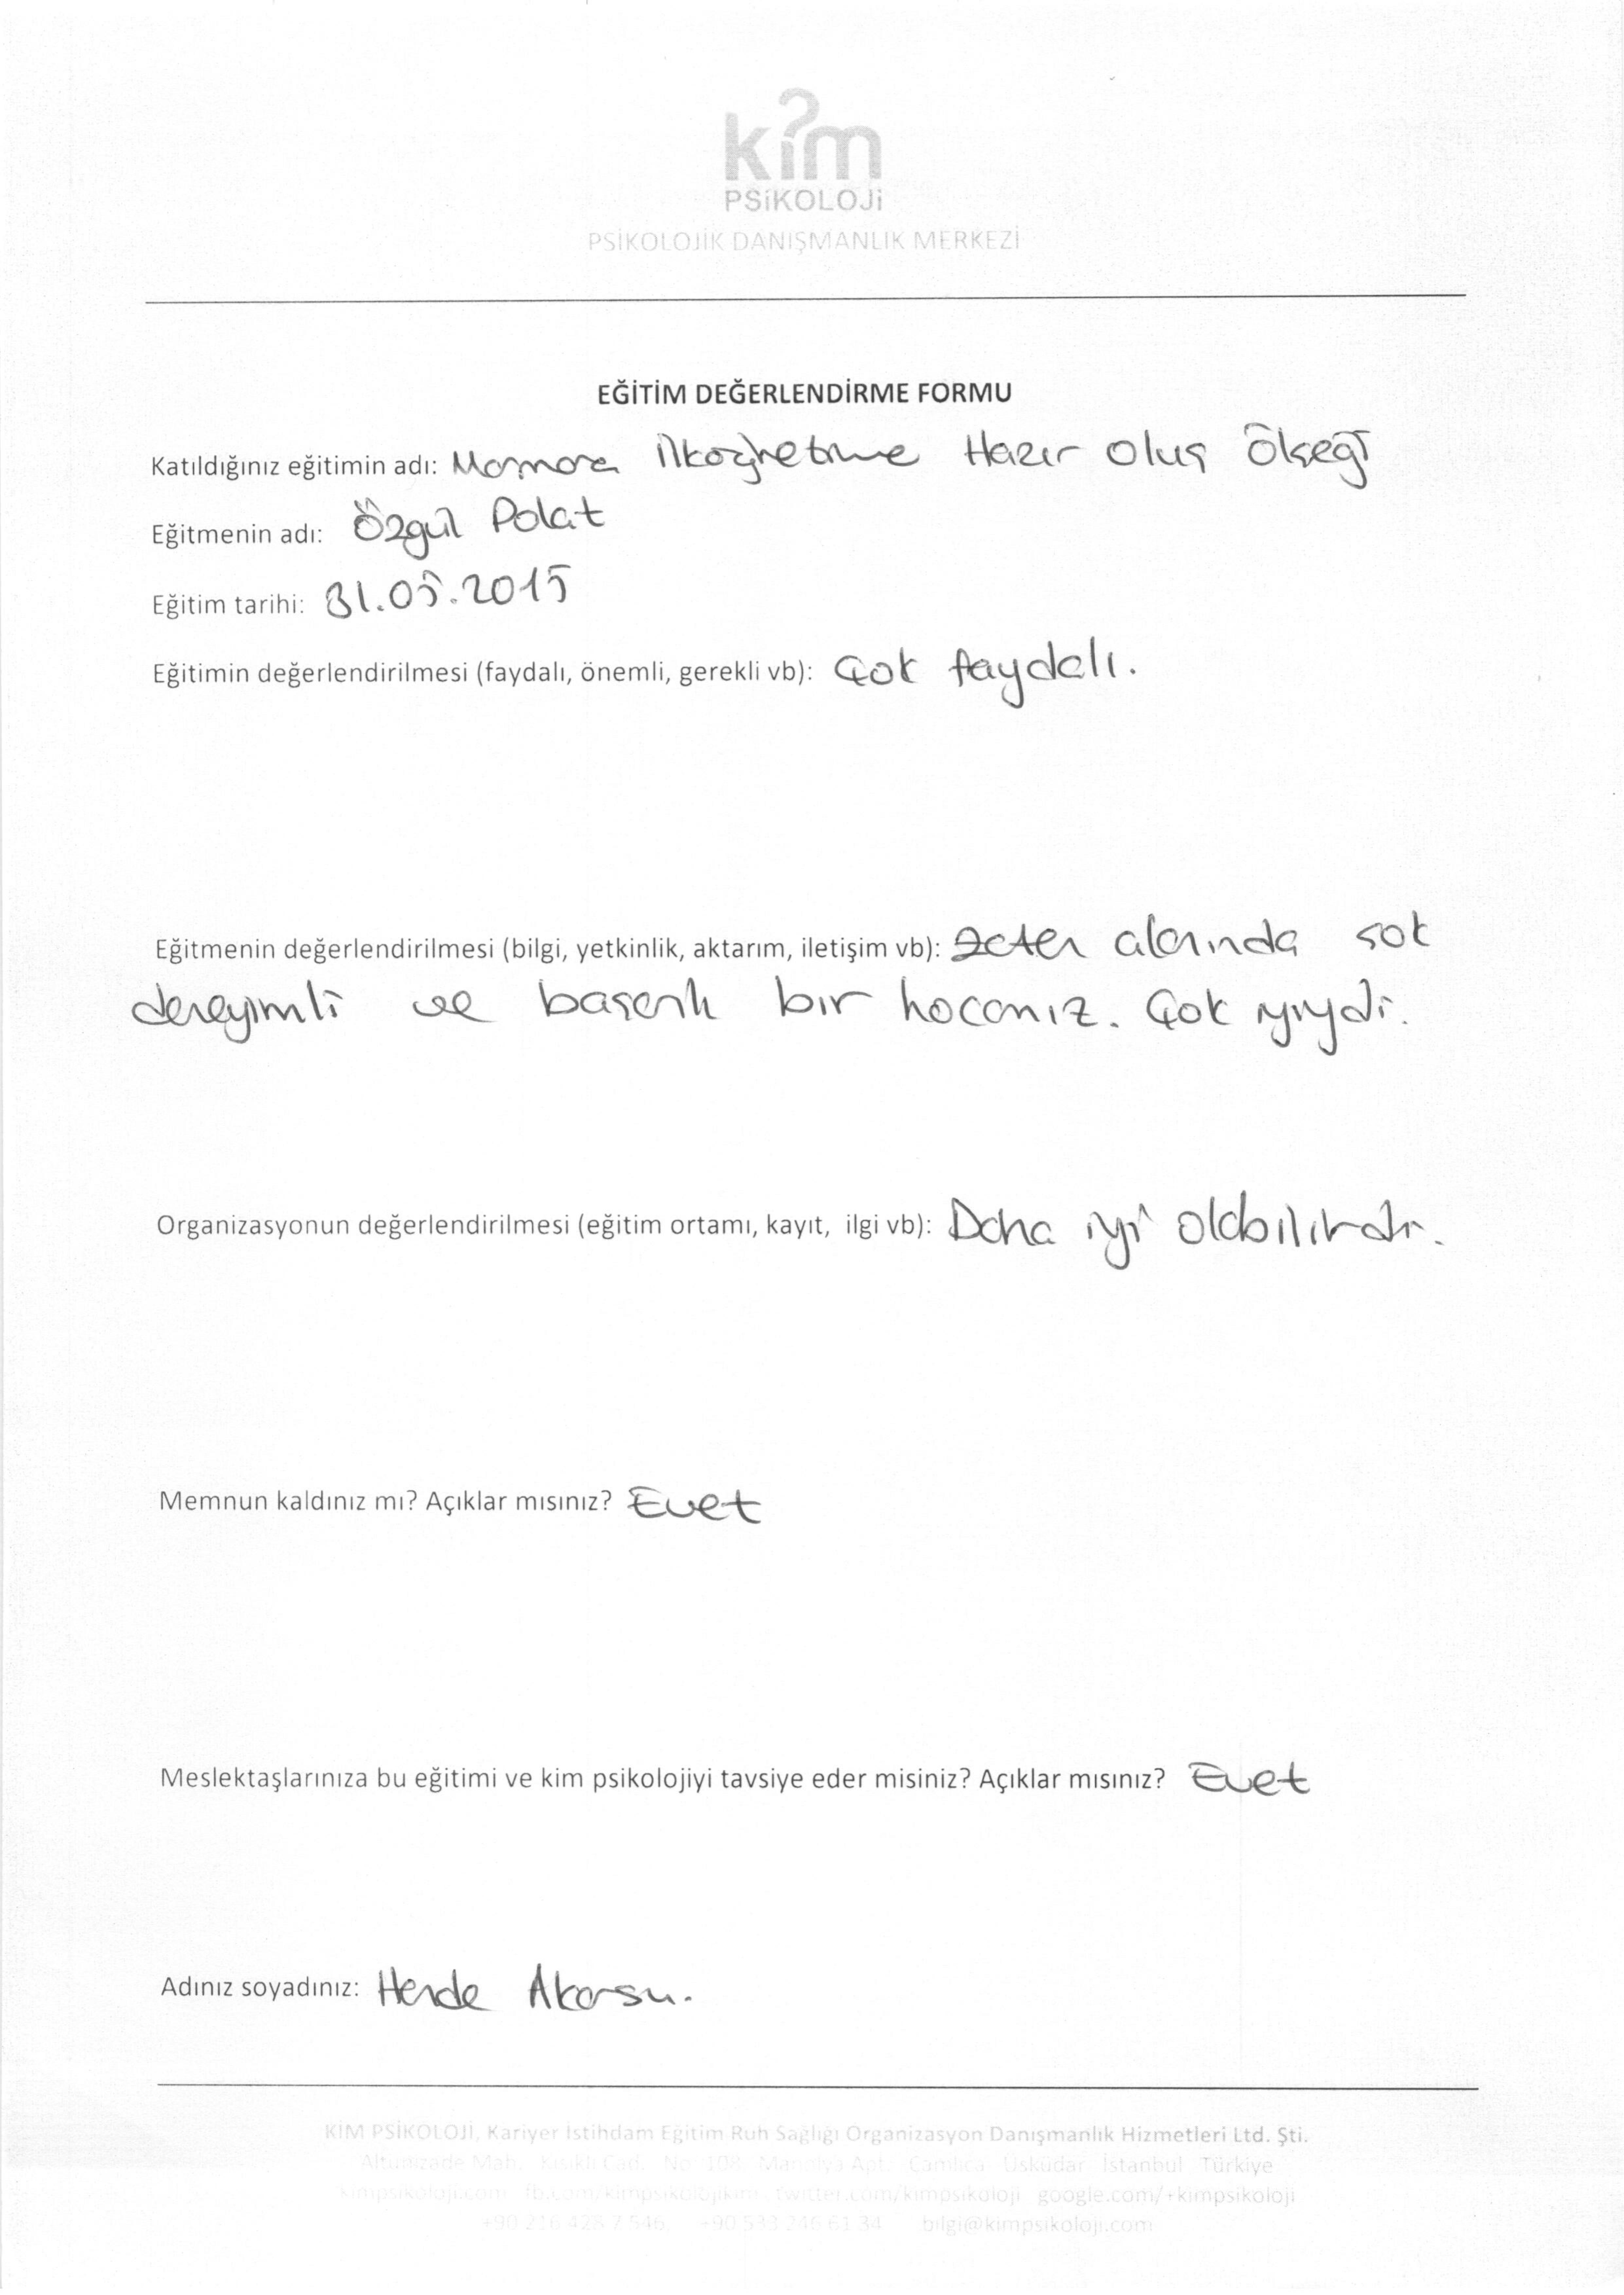 kim
PSiKOLOJi
PSİKOLOJİK DANIŞMANLIK MERKEZİ
EĞİTİM DEĞERLENDİRME FORMU
Katıldığınız eğitimin adı: İlköğretime Hazır Oluş Ölçeği
Eğitmenin adı: Özgül Polat
Eğitim tarihi: 31.05.2015
Eğitimin değerlendirilmesi (faydalı, önemli, gerekli vb): Çok faydalı.
Eğitmenin değerlendirilmesi (bilgi, yetkinlik, aktarım, iletişim vb): zaten alanında çok
deneyimli ve başarılı bir hocamız. Çok iyiydi.
Organizasyonun değerlendirilmesi (eğitim ortamı, kayıt, ilgi vb): Daha iyi olabilirdi.
Memnun kaldınız mı? Açıklar mısınız? Evet
Meslektaşlarınıza bu eğitimi ve kim psikolojiyi tavsiye eder misiniz? Açıklar mısınız? Evet
Adınız soyadınız: Hande Akarsu.
KİM PSİKOLOJİ, Kariyer İstihdam Eğitim Ruh Sağlığı Organizasyon Danışmanlık Hizmetleri Ltd. Şti.
Altunizade Mah. Kısıklı Cad. No 108 Manolya Apt. Çamlıca Üsküdar İstanbul Türkiye
kimpsikoloji.com fb.com/kimpsikolojikim twitter.com/kimpsikoloji google.com/+kimpsikoloji
+90 216 428 7 546 +90 533 246 61 34 bilgi@kimpsikoloji.com